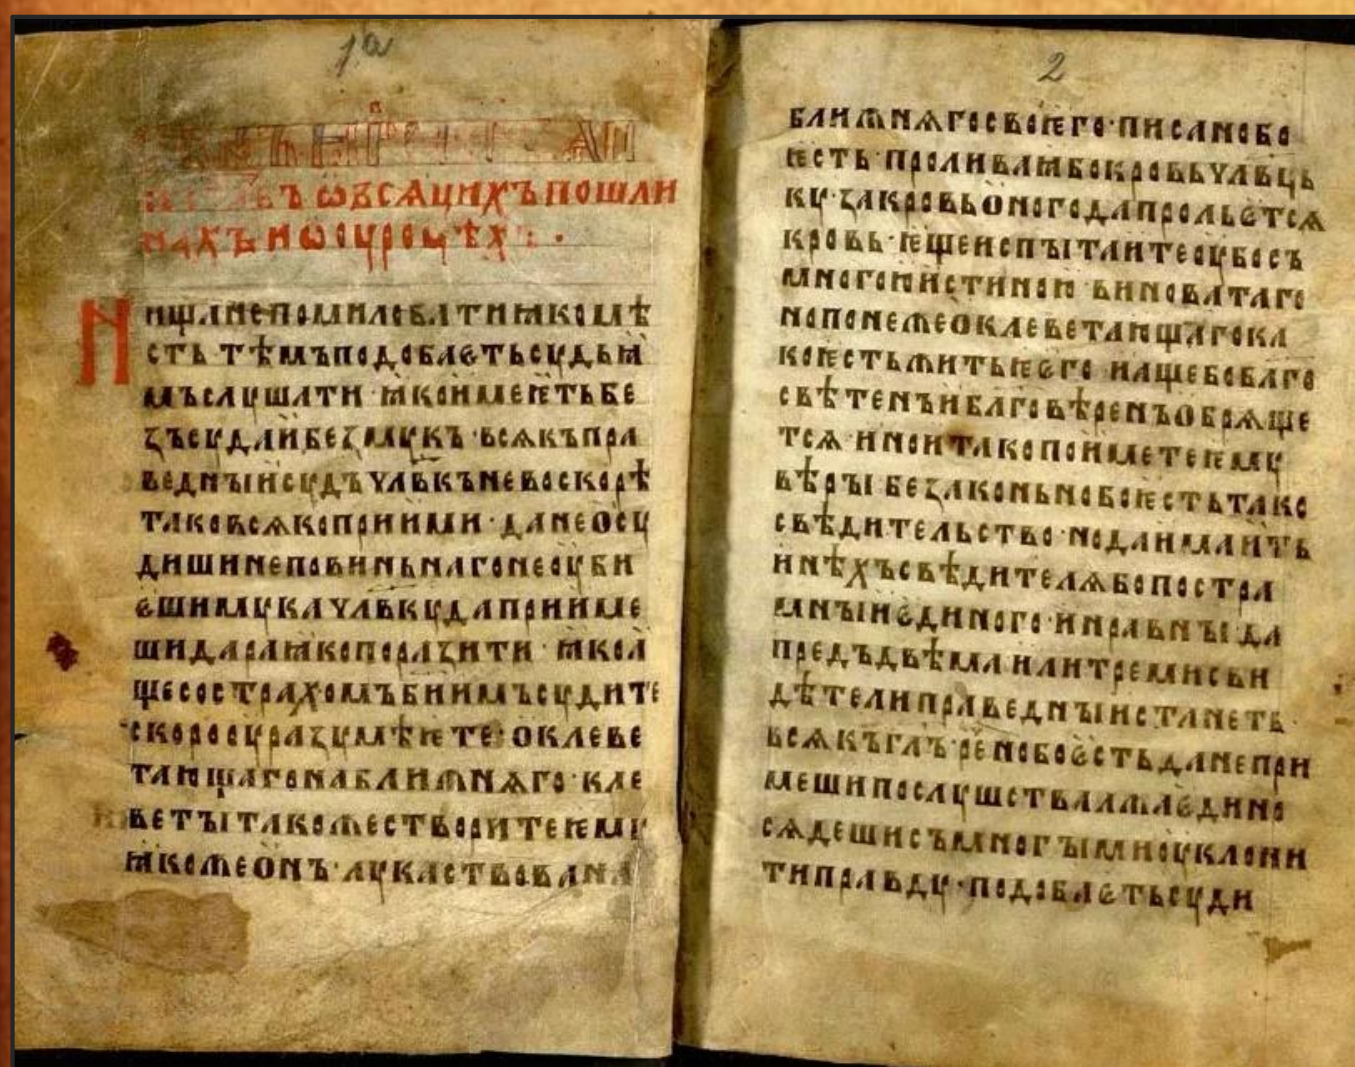 1а
въ ѡвсѧцихъпошли
нахъиѡоуроцѣхъ
Нищанепомиловатиꙗкомѣ
сть·тѣмъподобаєтьсудьꙗ
мъслушати·ꙗкоимеѥтьбе
ꙁъсудаибеꙁмукъ·всѧкъпра
ведныисудъчл҃вкъневоскорѣ
таковсѧкоприими·данеосу
дишинеповиньнагонеоуби
єшимукачл҃вкудаприиме
шидараꙗкопораꙁити·ꙗкоа
щесострахомъбиимъсудите
скорооураꙁумѣѥте·оклеве
тающагонаближнѧго·кле
ветытакожестворитеѥму
ꙗкожеонъ·лукаствована
2
ближнѧгосвоѥго·писанобо
ѥсть·проливаꙗибокровьчл҃вць
ку·ꙁакровьоногодапрольєтсѧ
кровь·ѥщеиспытаитеоубосъ
многоюистиною виноватаго
нопонежеоклеветающагока
коѥстьжитьѥєго·иащебобл҃го
свѣтенъибл҃говѣренъобрѧще
тсѧ·инойтакопоиметеѥму
вѣры·беꙁаконьнобоѥстьтако
свѣдительство·нодаимаить
инѣхъсвѣдителѧбопостра
мныиєдиного·инравныꙗ да
предъдвѣмаилитремисви
дѣтелиправедныистанеть
всѧкъгл҃ъ·ренобоєстьданепри
мешипослушстваажаєдино
сѧдешисъмногымиоуклони
типравду·подобаєтьсуди